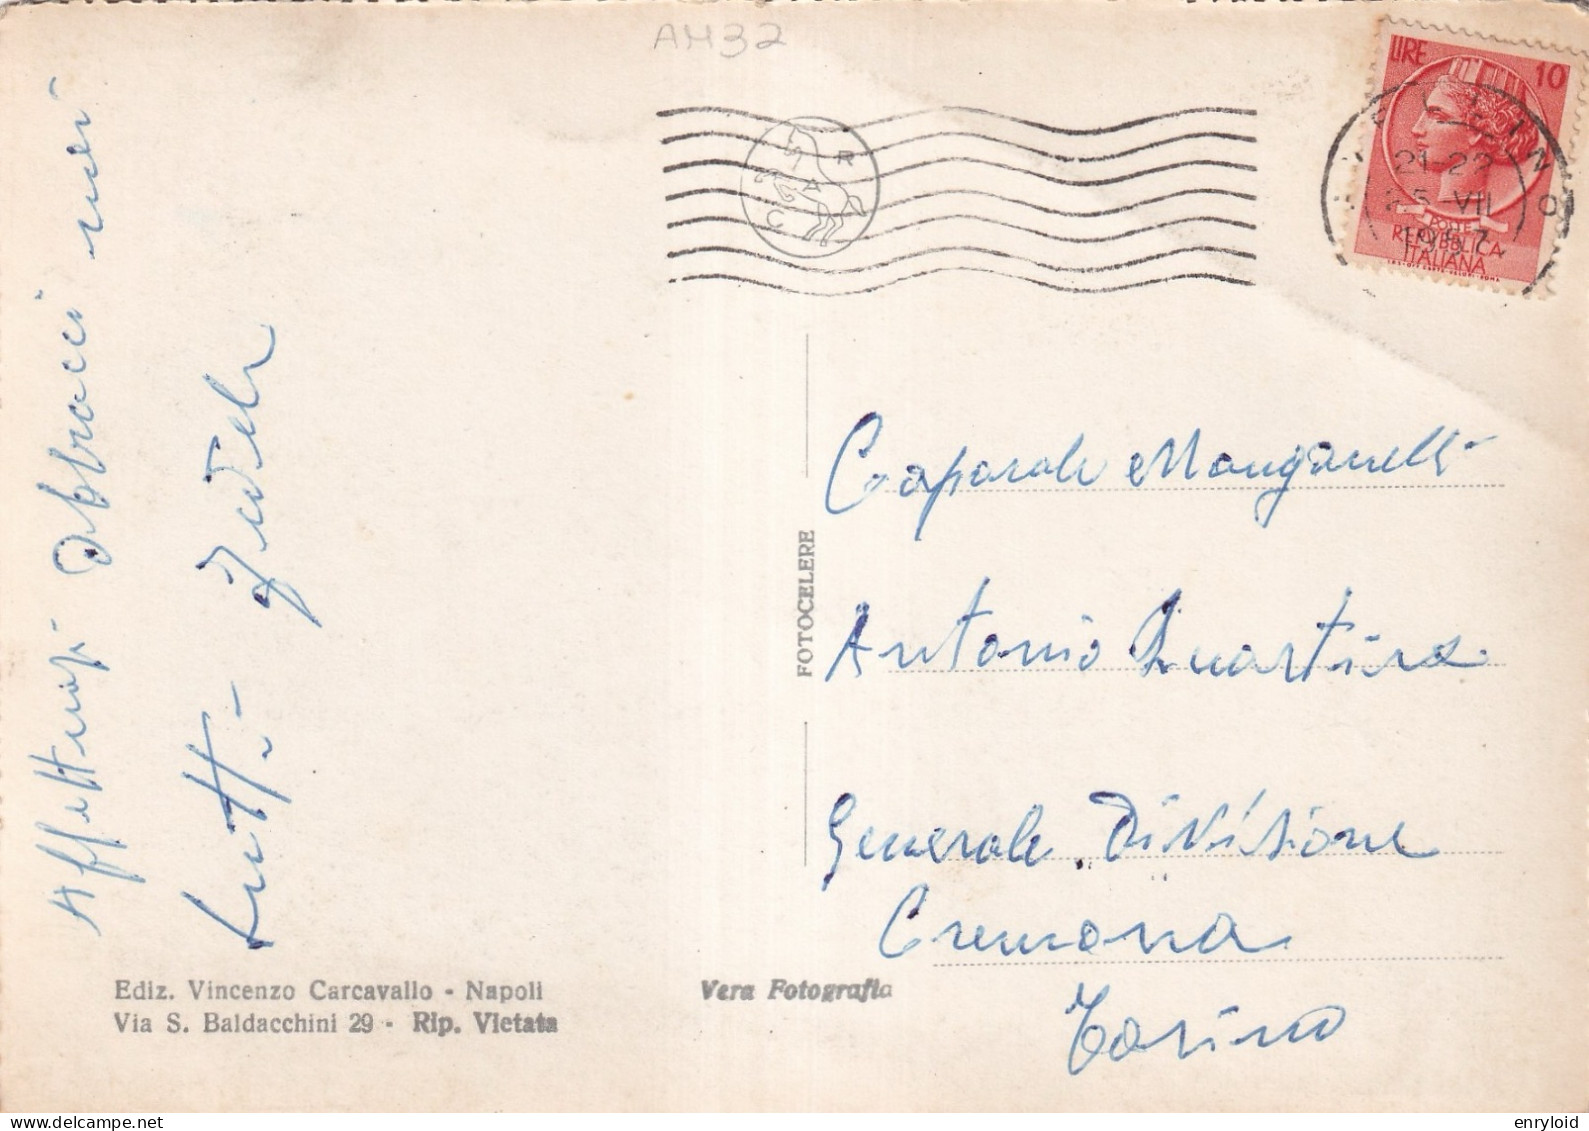 AM32
R
A
C
LIRE 10
21-22
VII
1957
POSTE
REPUBBLICA
ITALIANA
Affettuosi abbracci miei
tutti
FOTOCELERE
Caporale Manganelli
Antonio
Generale Divisione
Cremona
Torino
Ediz. Vincenzo Carcavallo - Napoli
Via S. Baldacchini 29 - Rip. Vietata
Vera Fotografia
enryloid